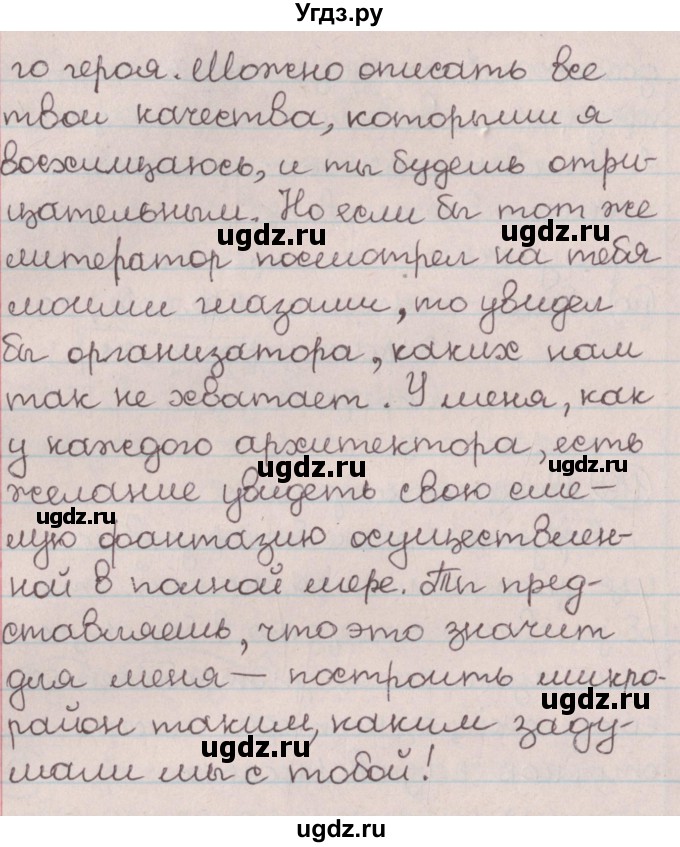 Угдз.ру
го героя. Можно описать все
твои качества, которыми я
восхищаюсь, и ты будешь отри-
цательным. Но если бы тот же
ugdz.ru ugdz.ru
литератор посмотрел на тебя
моими глазами, то увидел
бы организатора, каких нам
так не хватает. У меня, как
у каждого архитектора, есть
ugdz.ru ugdz.ru
желание увидеть свою сме-
ugdz.ru
лую фантазию осуществлен-
ной в полной мере. Ты пред-
ставляешь, что это значит
для меня — построить микро-
ugdz.ru
район таким, каким заду-
ugdz.ru
мали мы с тобой!
ugdz.ru